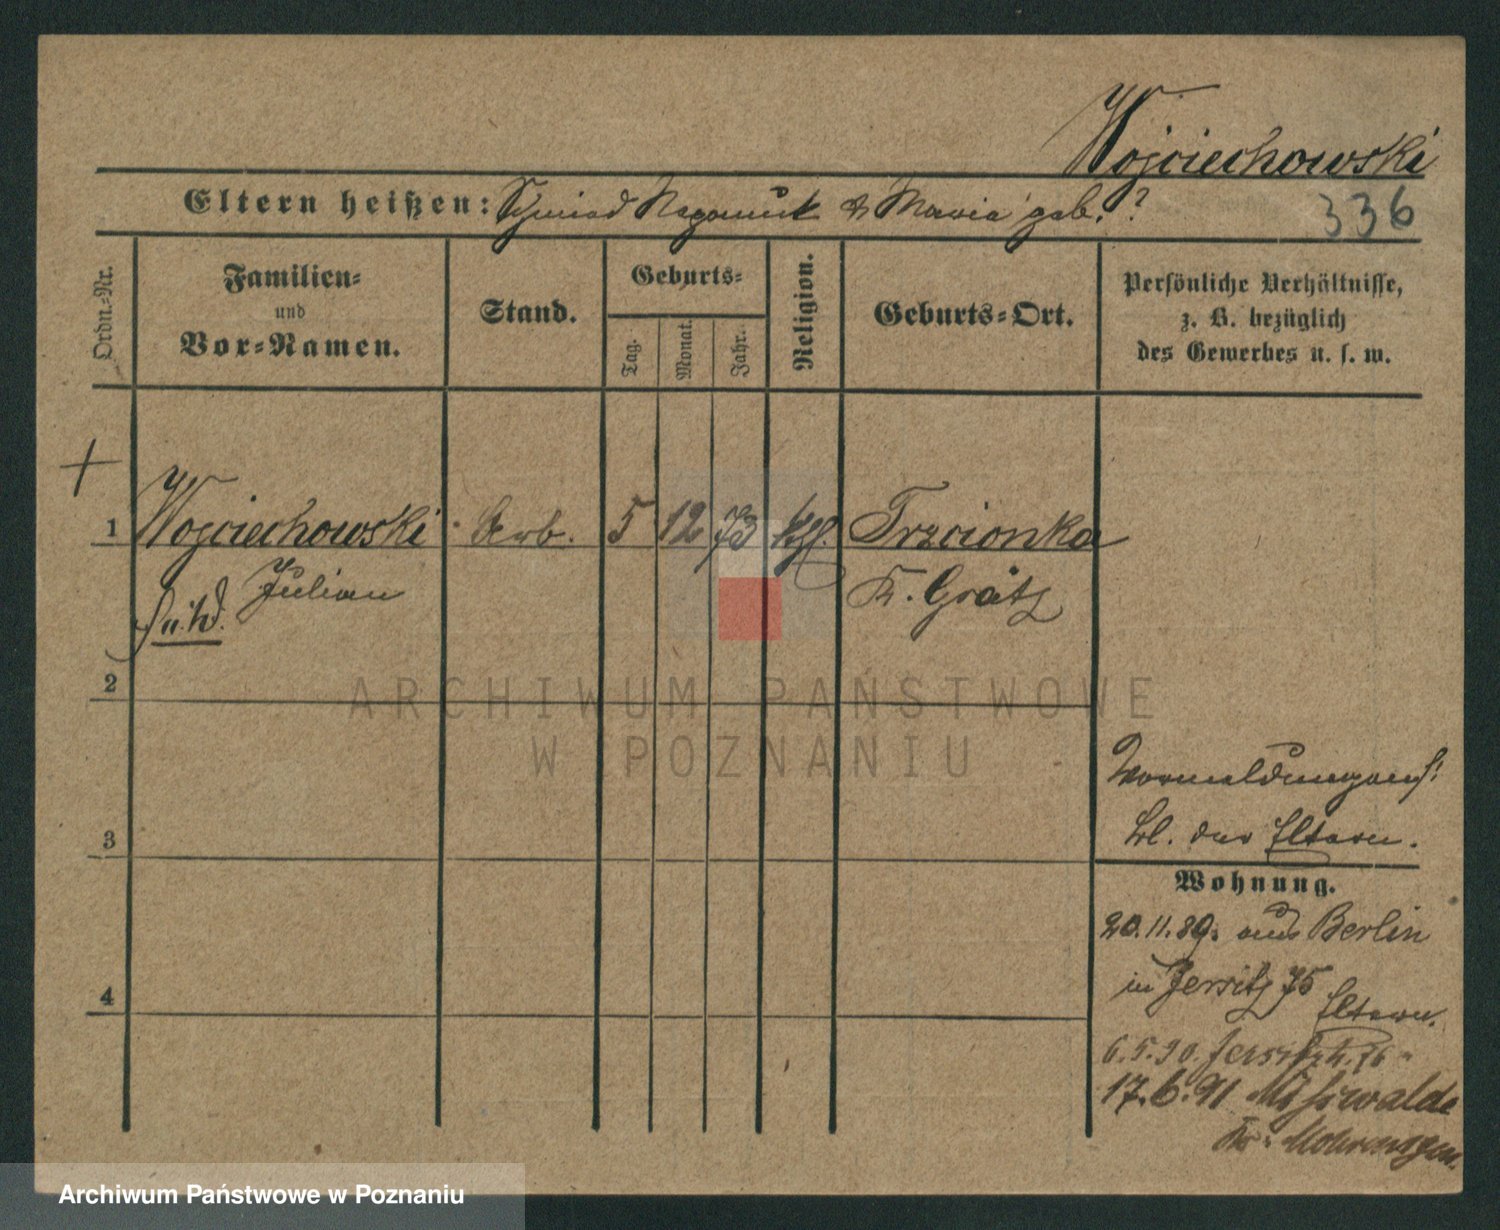 Wojciechowski
336
Eltern heißen: Schmied & Maria geb. ?
Ordn.-Nr.
Familien-
und
Vor-Namen.
Stand.
Geburts-
Tag.
Monat.
Jahr.
Religion.
Geburts-Ort.
Persönliche Verhältnisse,
z. B. bezüglich
des Gewerbes u. s. w.
1 Wojciechowski Arb. 5 12 73 kth. Trzcionka
Julian Kr. Grätz
2
3
4
Vormeldungen s.
bl. der Eltern.
Wohnung.
20.11.89. aus Berlin
in Jersitz 75
Eltern.
6.5.90. Jersitz 76
17.6.91
Kr. Mohrungen.
ARCHIWUM PAŃSTWOWE
W POZNANIU
Archiwum Państwowe w Poznaniu